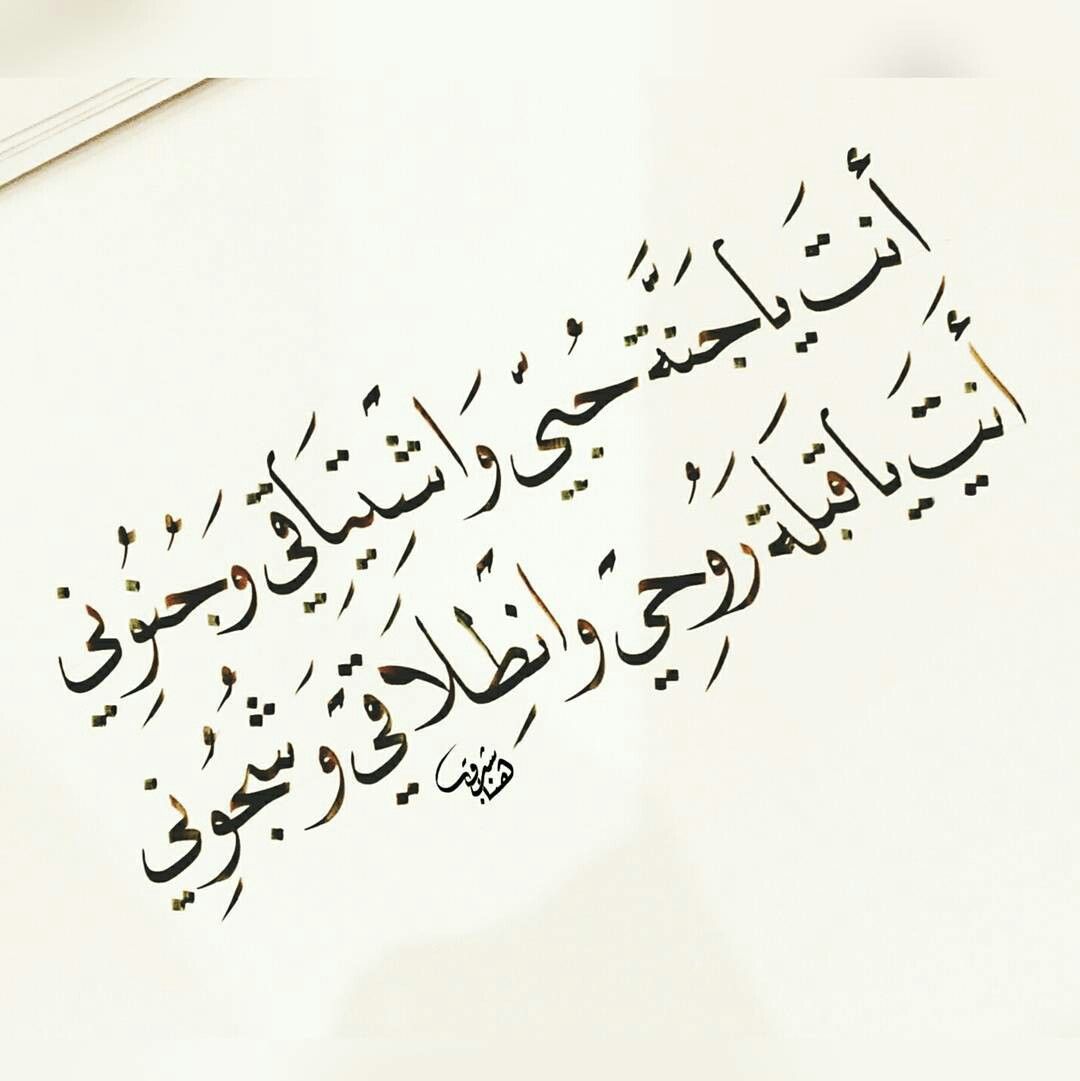 أَنتَ يَا جَنَّةَ حُبِّي وَاشْتِيَاقِي وَجُنُونِي
أَنتَ يَا قبلَةَ رُوحِي وَانْطِلَاقِي وَشُجُونِي